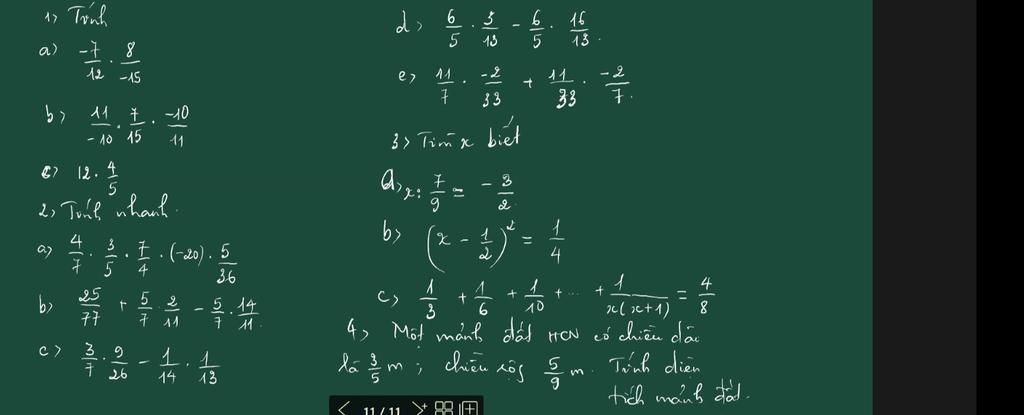 1) Tính
a) \frac{-7}{12} \cdot \frac{8}{-15}
b) \frac{11}{-10} \cdot \frac{7}{15} \cdot \frac{-10}{11}
c) 12 \cdot \frac{4}{5}
2) Tính nhanh.
a) \frac{4}{7} \cdot \frac{3}{5} \cdot \frac{7}{4} \cdot (-20) \cdot \frac{5}{36}
b) \frac{25}{77} + \frac{5}{7} \cdot \frac{2}{11} - \frac{5}{7} \cdot \frac{14}{11}.
c) \frac{3}{7} \cdot \frac{9}{26} - \frac{1}{14} \cdot \frac{1}{13}
d) \frac{6}{5} \cdot \frac{3}{13} - \frac{6}{5} \cdot \frac{16}{13}.
e) \frac{11}{7} \cdot \frac{-2}{33} + \frac{11}{33} \cdot \frac{-2}{7}.
3) Tìm x biết
a) x : \frac{7}{9} = -\frac{3}{2}
b) (x - \frac{1}{2})^2 = \frac{1}{4}
c) \frac{1}{3} + \frac{1}{6} + \frac{1}{10} + ... + \frac{1}{x(x+1)} = \frac{4}{8}
4) Một mảnh đất HCN có chiều dài
là \frac{3}{5} m ; chiều rộng \frac{5}{9} m. Tính diện
tích mảnh đất.
11/11